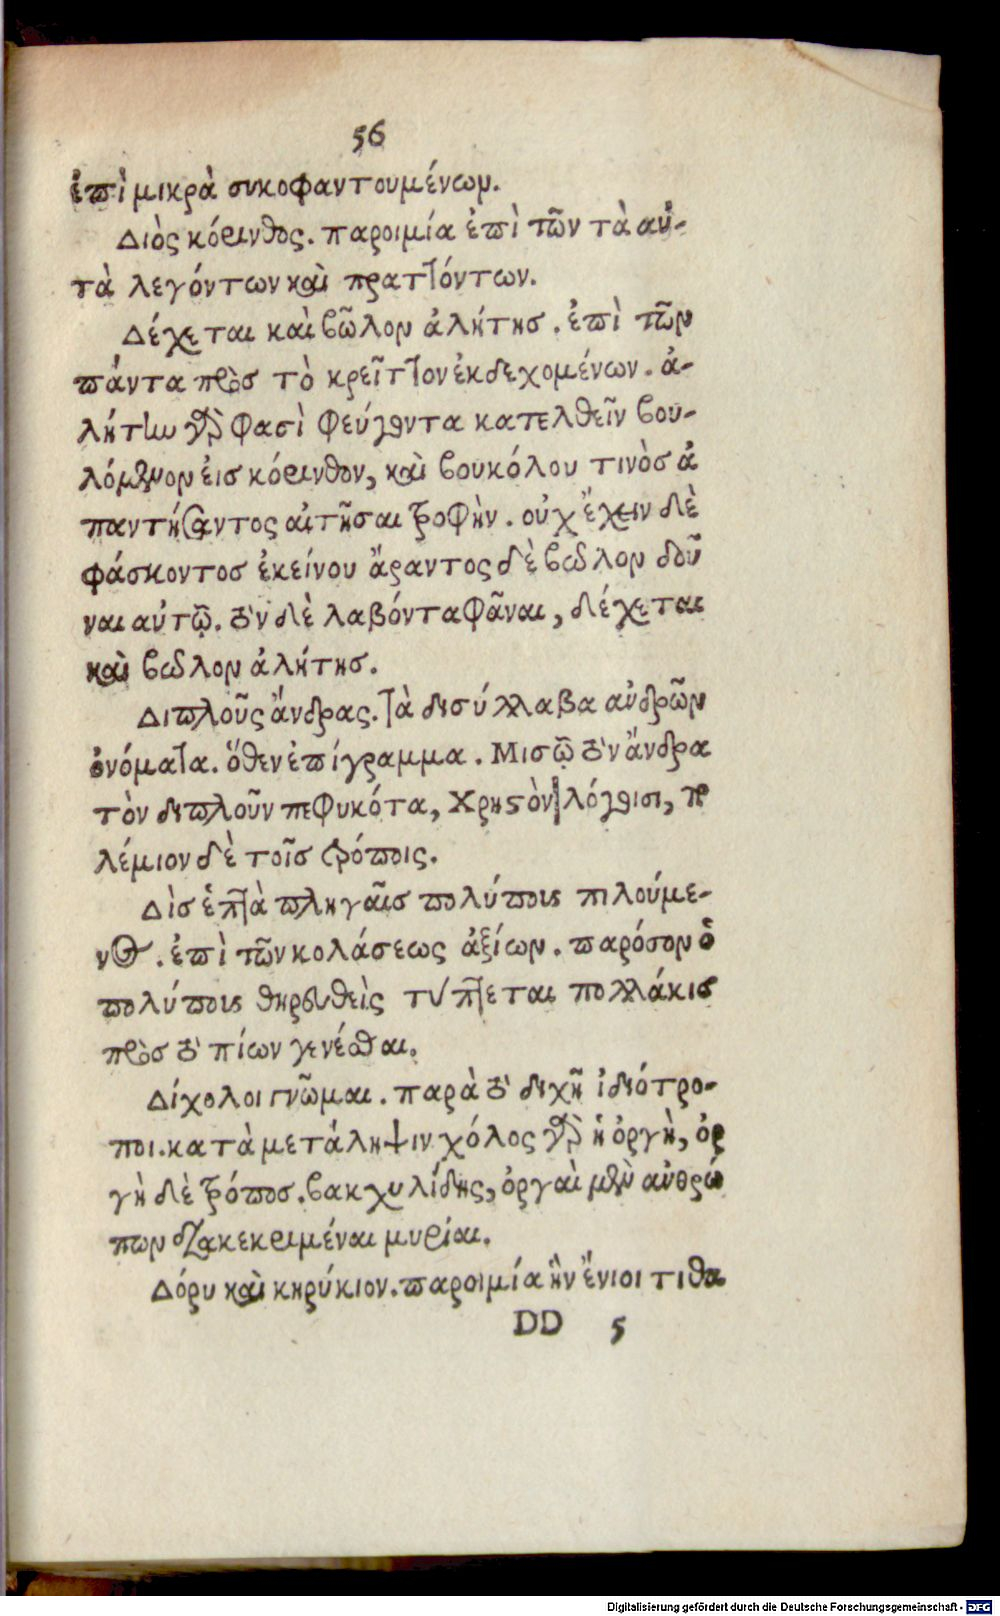 56
ἐπὶ μικρὰ συκοφαντουμένων.
Διὸς κόρινθος. παροιμία ἐπὶ τῶν τὰ αὐ-
τὰ λεγόντων καὶ πραττόντων.
Δέχεται καὶ βῶλον ἀλήτης. ἐπὶ τῶν
πάντα πρὸς τὸ κρεῖττον ἐκδεχομένων. ἀ-
λήτην γάρ φασὶ φεύγοντα κατελθεῖν βου-
λόμενον εἰς κόρινθον, καὶ βουκόλου τινὸς ἀ
παντήσαντος αἰτῆσαι τροφὴν. οὐχ ἔχειν δὲ
φάσκοντος ἐκείνου ἄραντος δὲ βωλον δοῦ
ναι αὐτῷ. τὸν δὲ λαβόντα φᾶναι, δέχεται
καὶ βωλον ἀλήτης.
Διπλοῦς ἄνδρας. τὰ δισύλλαβα ἀνδρῶν
ὀνόματα. ὅθεν ἐπίγραμμα. Μισῶ τὸν ἄνδρα
τὸν διπλοῦν πεφυκότα, χρηστὸν λόγοισι, πο
λέμιον δὲ τοῖς τρόποις.
Δὶς ἑπτὰ πληγαῖς πολύπους πιλούμε-
νος. ἐπὶ τῶν κολάσεως ἀξίων. παρόσον ὁ
πολύπους θηρευθεὶς τύπτεται πολλάκις
πρὸς τὸ πίων γενέσθαι.
Δίχολοι γνῶμαι. παρὰ τὸ διχῆ ἰδιότρο-
ποι. κατὰ μετάληψιν χόλος γὰρ ἡ ὀργὴ, ὀρ
γὴ δὲ τρόπος. βακχυλίδης, ὀργαὶ μὲν ἀνθρώ
πων διακεκριμέναι μυρίαι.
Δόρυ καὶ κηρύκιον. παροιμία ἣν ἔνιοι τιθα
DD 5
Digitalisierung gefördert durch die Deutsche Forschungsgemeinschaft - DFG